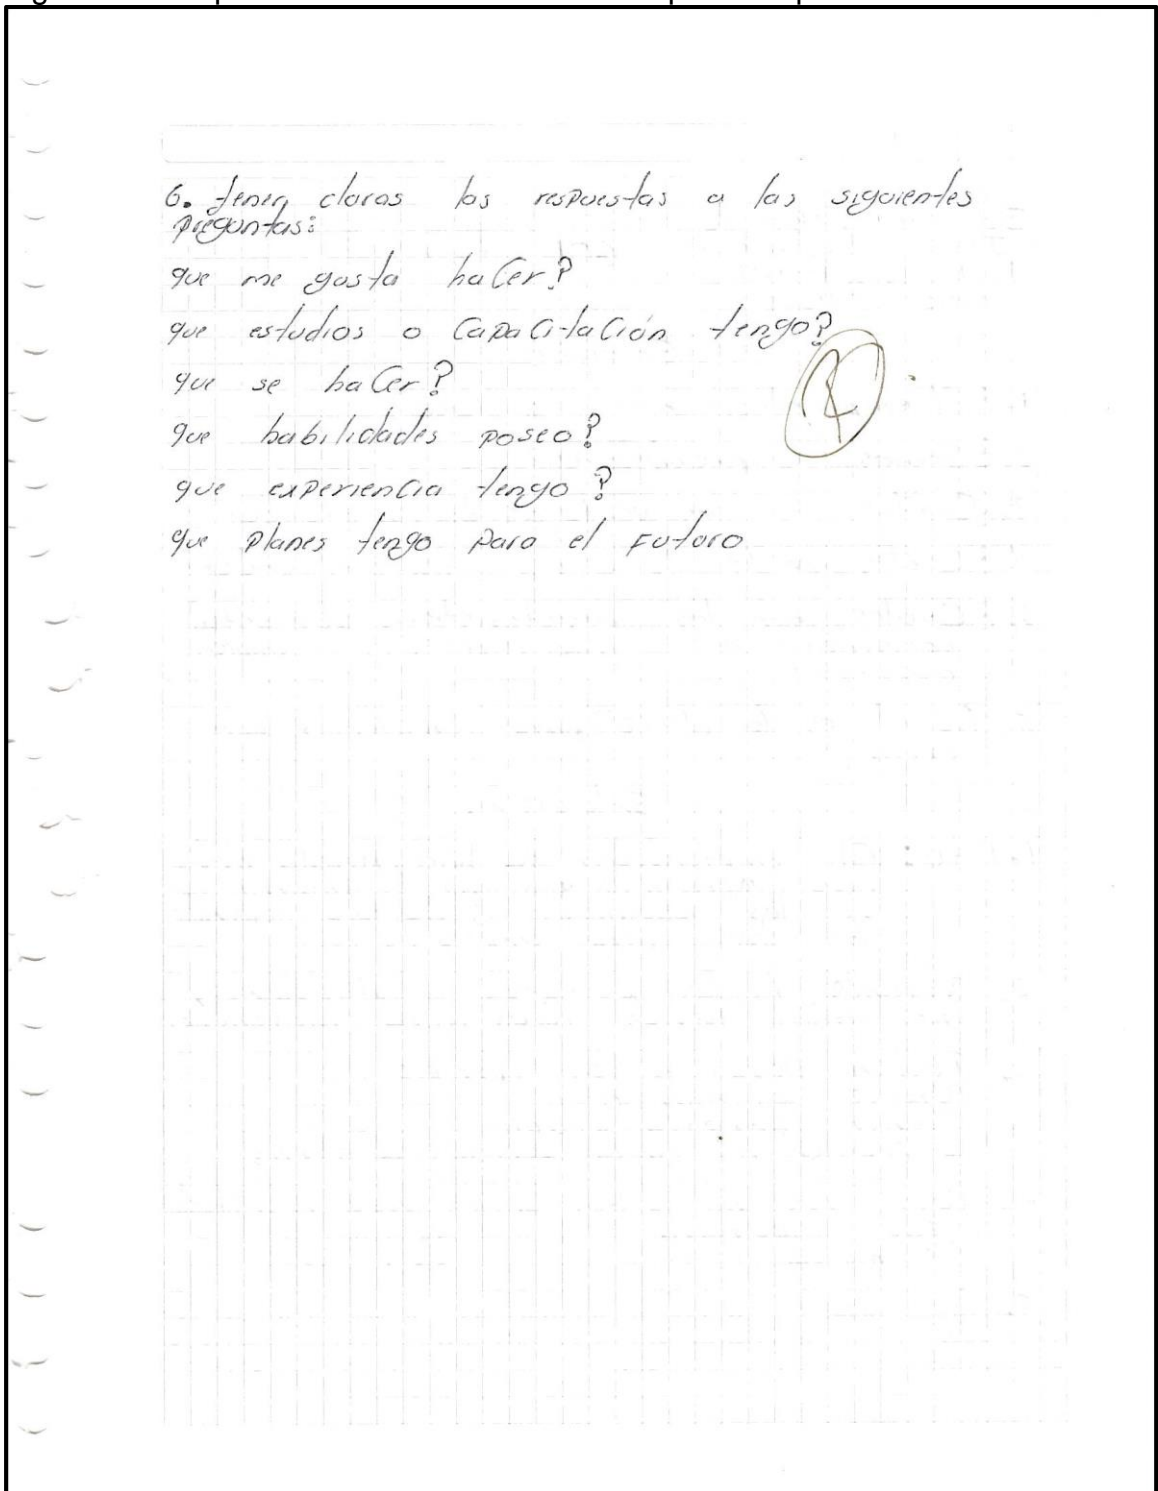 6. tener claras las respuestas a las siguientes
preguntas:
que me gusta hacer?
que estudios o Capacitación tengo?
que se hacer?
que habilidades poseo?
que experiencia tengo?
que planes tengo para el Futuro